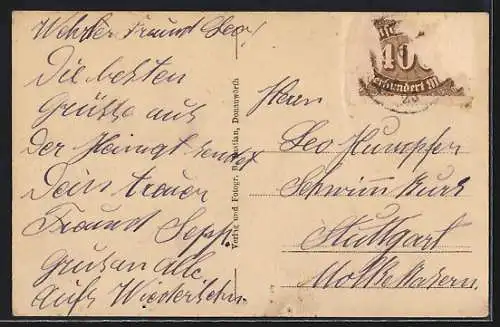 Werter Freund Leo!
Die besten
Grüsse aus
der Heimgt sendet
Dein treuer
Freund Sepp.
Grus an alle
aufs Wiedersehn.
Verlag und Fotogr. Donauwörth
400
Herrn
Leo Kumpfer
Schwimm Kurs
Stuttgart
Moltkekasern.